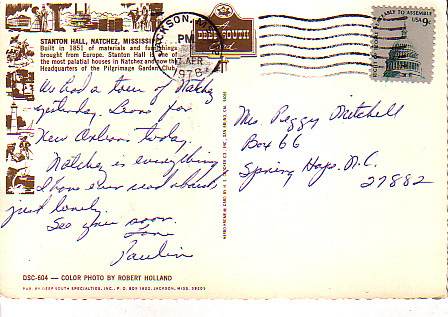 STANTON HALL, NATCHEZ, MISSISSIPPI
Built in 1851 of materials and furnishings
brought from Europe. Stanton Hall is one of
the most palatial houses in Natchez and now the
Headquarters of the Pilgrimage Garden Club.
We had a tour of Natchez
yesterday. Leave for
New Orleans today.
Natchez is everything
I have ever read about
just lovely.
See you soon.
Love
Paulin
DSC-604 — COLOR PHOTO BY ROBERT HOLLAND
PUB. BY DEEP SOUTH SPECIALTIES, INC., P. O. BOX 1902, JACKSON, MISS. 39205
JACKSON, MS
PM
17 APR
1978
DEEP SOUTH
Card
TO ASSEMBLE
USA 9c
Mrs. Peggy Mitchell
Box 66
Spring Hope, N.C.
27882